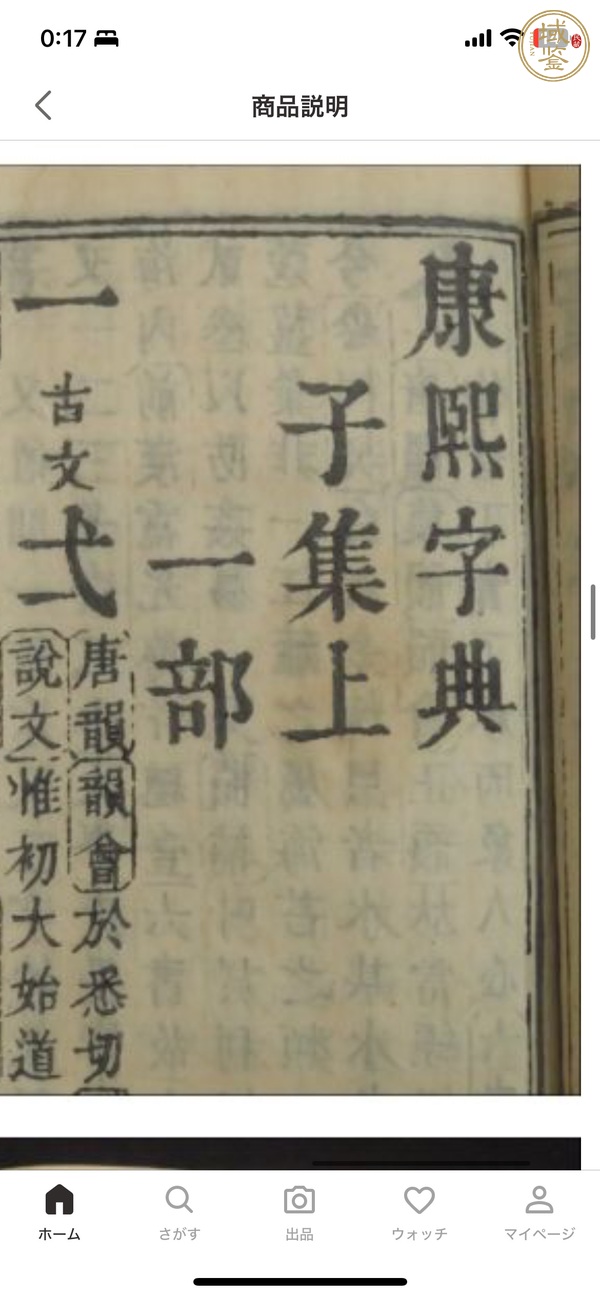 0:17
商品説明
康熙字典
子集上
一部
一 古文 弌 唐韻 韻會 於悉切
說文 惟初大始道
ホーム
さがす
出品
ウォッチ
マイページ